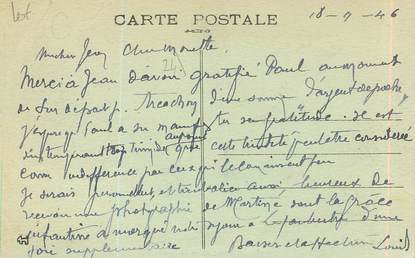 Lest
CARTE POSTALE
18-9-46
Mon cher Jean Chère Monette.
Merci à Jean d'avoir gratifié Paul au moment
de son départ p. Arcachon d'une somme d'argent de poche
j'espère que Paul a su manifester sa gratitude. Il est
d'un tempérament trop timide que cette timidité peut être considérée
comme indifférence par ceux qui le connaissent peu
Je serais personnellement, et très aussi, heureux de
recevoir une photographie de Martine dont la grâce
enfantine a marqué notre séjour à d'une
joie supplémentaire
Baisers et affection
Louis